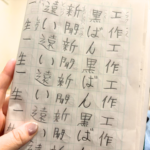 工作工作工作工作工
黒ばん黒ばん黒ばん
新聞新聞新聞新聞新
遠い遠い遠い遠い遠
生一生一生